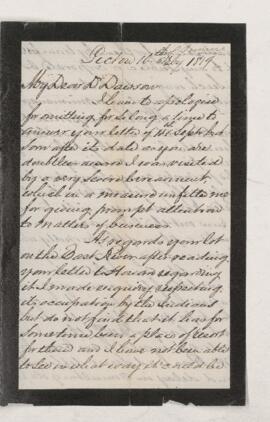 Pictou 10th July 1879
My Dear Dr Dawson
I have to apologise
for omitting for so long a time to
answer your letter of 1st Sept but
soon after its date as you are
doubtless aware I was visited
by a very severe bereavement,
which in a measure unfitted me
for giving prompt attention
to matters of business.
As regards your lot
on the East River after reading
your letter to Howard regarding
it I made enquiry respecting
its occupation by the Indians
but do not find that it has for
sometime been a place of resort
for them and I have not been able
to see in what way it could be